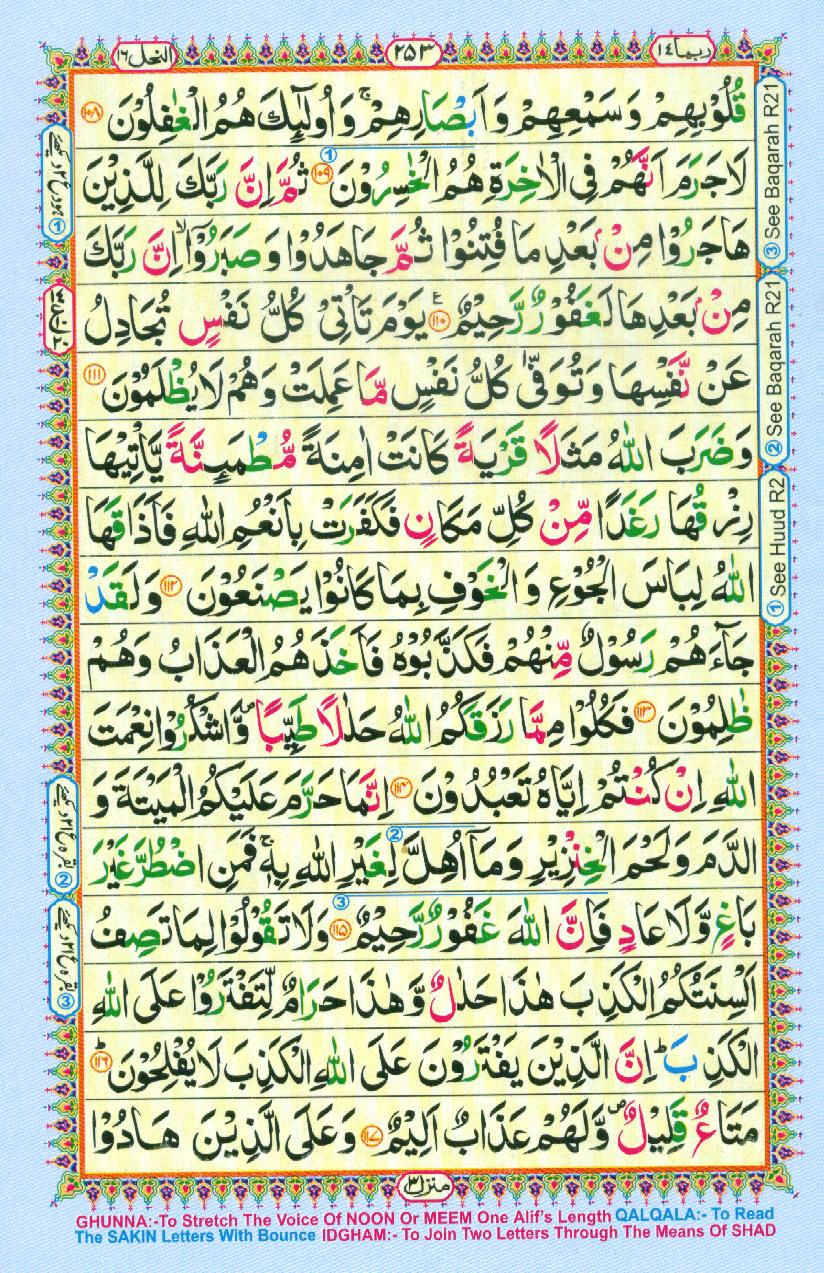 ربما ١٤
٢٥٣
النحل ١٦
قُلُوْبِهِمْ وَسَمْعِهِمْ وَاَبْصَارِهِمْ ۚ وَاُولٰٓئِكَ هُمُ الْغٰفِلُوْنَ ۝۱۰۸
لَاجَرَمَ اَنَّهُمْ فِى الْاٰخِرَةِ هُمُ الْخٰسِرُوْنَ ۝۱۰۹ ثُمَّ اِنَّ رَبَّكَ لِلَّذِيْنَ
هَاجَرُوْا مِنْۢ بَعْدِ مَا فُتِنُوْا ثُمَّ جَاهَدُوْا وَصَبَرُوْٓا ۙ اِنَّ رَبَّكَ
مِنْۢ بَعْدِهَا لَغَفُوْرٌ رَّحِيْمٌ ۝۱۱۰ يَوْمَ تَاْتِىْ كُلُّ نَفْسٍ تُجَادِلُ
عَنْ نَّفْسِهَا وَتُوَفّٰى كُلُّ نَفْسٍ مَّا عَمِلَتْ وَهُمْ لَا يُظْلَمُوْنَ ۝۱۱۱
وَضَرَبَ اللّٰهُ مَثَلًا قَرْيَةً كَانَتْ اٰمِنَةً مُّطْمَىِٕنَّةً يَّاْتِيْهَا
رِزْقُهَا رَغَدًا مِّنْ كُلِّ مَكَانٍ فَكَفَرَتْ بِاَنْعُمِ اللّٰهِ فَاَذَاقَهَا
اللّٰهُ لِبَاسَ الْجُوْعِ وَالْخَوْفِ بِمَا كَانُوْا يَصْنَعُوْنَ ۝۱۱۲ وَلَقَدْ
جَآءَهُمْ رَسُوْلٌ مِّنْهُمْ فَكَذَّبُوْهُ فَاَخَذَهُمُ الْعَذَابُ وَهُمْ
ظٰلِمُوْنَ ۝۱۱۳ فَكُلُوْا مِمَّا رَزَقَكُمُ اللّٰهُ حَلٰلًا طَيِّبًا ۖ وَّاشْكُرُوْا نِعْمَتَ
اللّٰهِ اِنْ كُنْتُمْ اِيَّاهُ تَعْبُدُوْنَ ۝۱۱۴ اِنَّمَا حَرَّمَ عَلَيْكُمُ الْمَيْتَةَ وَ
الدَّمَ وَلَحْمَ الْخِنْزِيْرِ وَمَآ اُهِلَّ لِغَيْرِ اللّٰهِ بِهٖ ۚ فَمَنِ اضْطُرَّ غَيْرَ
بَاغٍ وَّلَا عَادٍ فَاِنَّ اللّٰهَ غَفُوْرٌ رَّحِيْمٌ ۝۱۱۵ وَلَا تَقُوْلُوْا لِمَا تَصِفُ
اَلْسِنَتُكُمُ الْكَذِبَ هٰذَا حَلٰلٌ وَّهٰذَا حَرَامٌ لِّتَفْتَرُوْا عَلَى اللّٰهِ
الْكَذِبَ ؕ اِنَّ الَّذِيْنَ يَفْتَرُوْنَ عَلَى اللّٰهِ الْكَذِبَ لَا يُفْلِحُوْنَ ؕ ۝۱۱۶
مَتَاعٌ قَلِيْلٌ ۪ وَّلَهُمْ عَذَابٌ اَلِيْمٌ ۝۱۱۷ وَعَلَى الَّذِيْنَ هَادُوْا
③ See Baqarah R21
② See Baqarah R21
① See Huud R2
منزل ٣
GHUNNA:-To Stretch The Voice Of NOON Or MEEM One Alif's Length QALQALA:- To Read
The SAKIN Letters With Bounce IDGHAM:- To Join Two Letters Through The Means Of SHAD